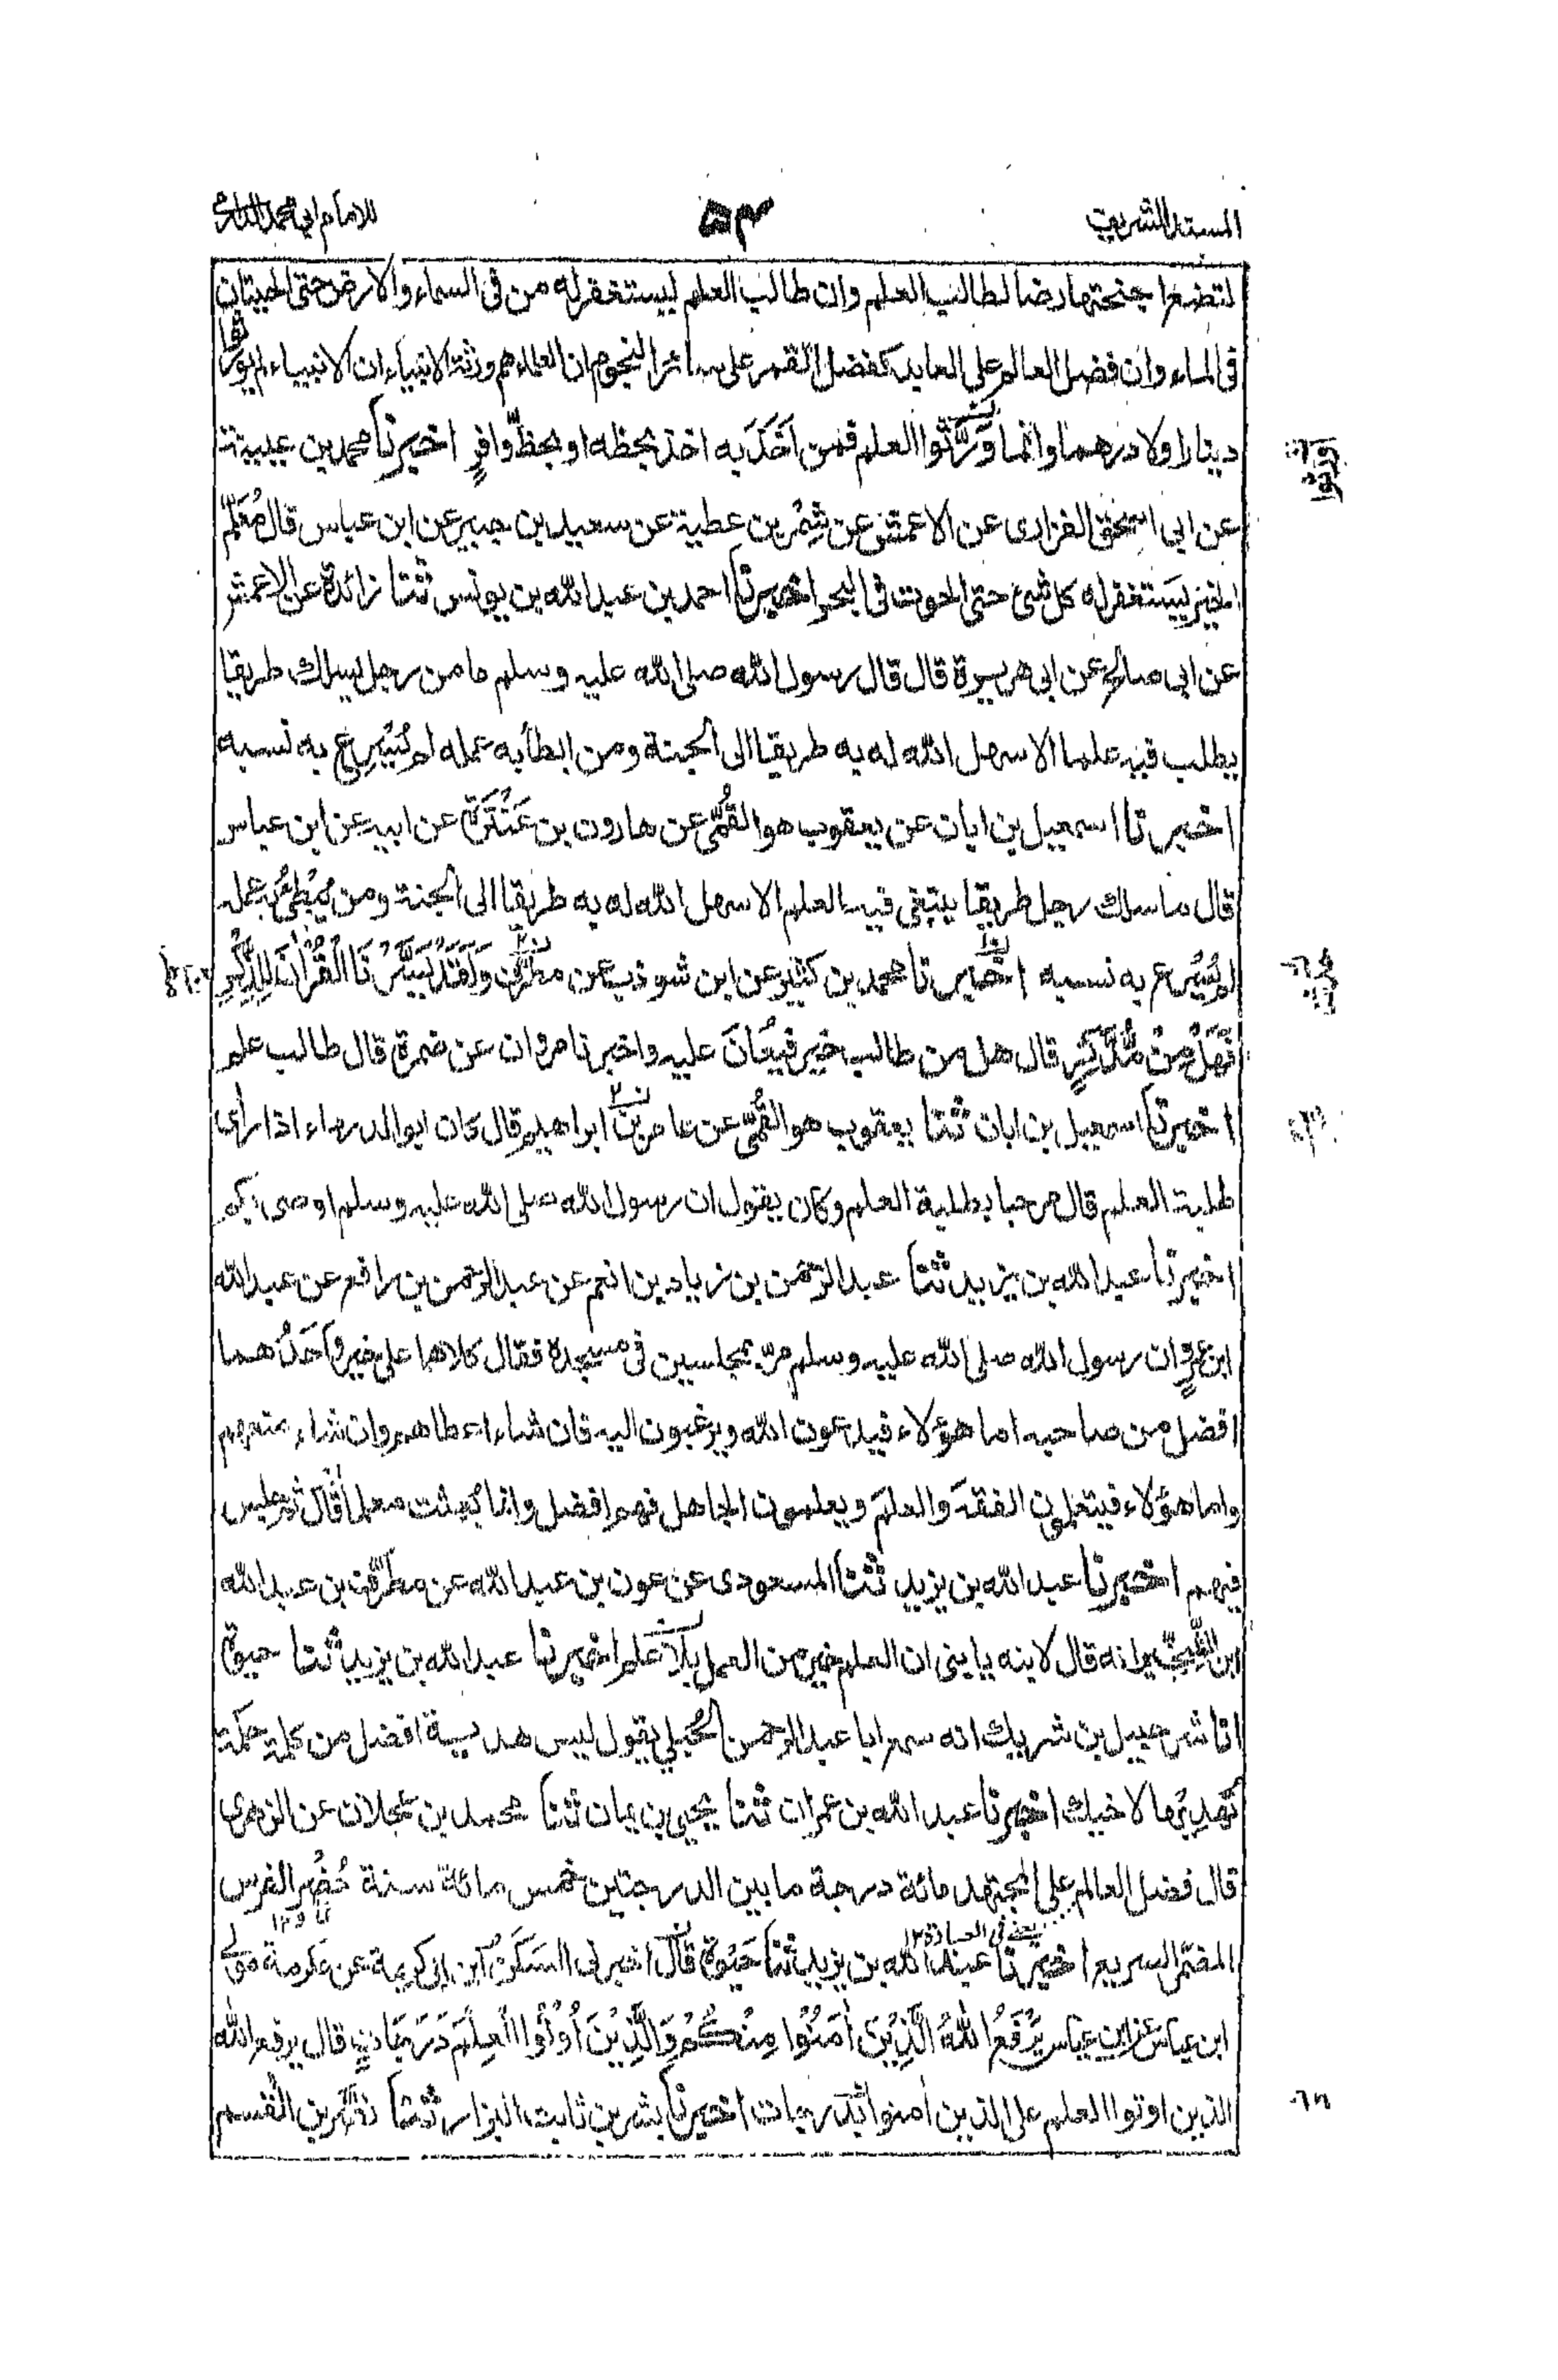 المسند الشريف
٥٣
للامام ابي محمد الدارمي
لتضع اجنحتها رضا لطالب العلم وان طالب العلم ليستغفر له من فى السماء والارض حتى الحيتان
فى الماء وان فضل العالم على العابد كفضل القمر على سائر النجوم ان العلماء هم ورثة الانبياء ان الانبياء لم يورثوا
دينارا ولا درهما وانما وَرَّثُوا العلم فمن اَخَذَ به اخذ بحظه او بحظٍّ وافرٍ اخبرنا محمد بن عيينة
عن ابى اسحٰق الفزارى عن الاعمش عن شِمْر بن عطية عن سعيد بن جبير عن ابن عباس قال مُعَلِّم
الخير يَستغفر له كل شئ حتى الحوت فى البحر اخبرنا احمد بن عبد الله بن يونس ثنا زائدة عن الاعمش
عن ابى صالح عن ابى هريرة قال قال رسول الله صلى الله عليه وسلم ما من رجل يسلك طريقا
يطلب فيه علما الا سهل الله له به طريقا الى الجنة ومن ابطأ به عمله لم يُسْرِع به نسبه
اخبرنا اسمعيل بن ابان عن يعقوب هو القُمّى عن هارون بن عَنْتَرَة عن ابيه عن ابن عباس
قال ما سلك رجل طريقا يبتغى فيه العلم الا سهل الله له به طريقا الى الجنة ومن يُبْطِئُ به عمله
لم يُسْرِع به نسبه اخبرنا محمد بن كثير عن ابن شوذب عن مطر وَلَقَدْ يَسَّرْنَا الْقُرْاٰنَ لِلذِّكْرِ
فَهَلْ مِنْ مُّدَّكِرٍ قال هل من طالب خير فيُعَانَ عليه واخبرنا مروان عن ضمرة قال طالب علم
اخبرنا اسمعيل بن ابان ثنا يعقوب هو القُمّى عن عامر بن ابراهيم قال كان ابو الدرداء اذا رأى
طلبة العلم قال مرحبا بطلبة العلم وكان يقول ان رسول الله صلى الله عليه وسلم اوصى بكم
اخبرنا عبد الله بن يزيد ثنا عبد الرحمٰن بن زياد بن انعم عن عبد الرحمن بن رافع عن عبد الله
ابن عمرٍو ان رسول الله صلى الله عليه وسلم مرّ بمجلسين فى مسجده فقال كلاهما على خير واَحَدُهما
افضل من صاحبه اما هؤلاء فيدعون الله ويرغبون اليه فان شاء اعطاهم وان شاء منعهم
واما هؤلاء فيتعلمون الفقهَ والعلمَ ويعلمون الجاهل فهم افضل وانما بُعثت معلما قال ثم جلس
فيهم اخبرنا عبد الله بن يزيد ثنا المسعودى عن عون بن عبد الله عن مطرّف بن عبد الله
ابن الشِّخِّير انه قال لابنه يا بنى ان العلم خير من العمل بلا علم اخبرنا عبد الله بن يزيد ثنا حيوة
انا شرحبيل بن شريك انه سمع ابا عبد الرحمن الحُبلى يقول ليس هدية افضل من كلمة حكمة
تُهديها لاخيك اخبرنا عبد الله بن عمران ثنا يحيى بن يمان ثنا محمد بن عجلان عن الزهرى
قال فضل العالم على المجتهد مائة درجة ما بين الدرجتين خمس مائة سنة حُضْر الفرس
يعنى فى العبادة ١٢
المضمّر السريع اخبرنا عبد الله بن يزيد ثنا حَيْوة قال اخبرنى السَكَن ابن ابى كريمة عن عكرمة مولى
ابن عباس عن ابن عباس يَرْفَعُ اللّٰهُ الَّذِيْنَ اٰمَنُوْا مِنْكُمْ وَالَّذِيْنَ اُوْتُوا الْعِلْمَ دَرَجَاتٍ قال يرفع الله
الذين اوتوا العلم على الذين امنوا بدرجات اخبرنا بشر بن ثابت البزار ثنا نصر بن القسم
ورثوا